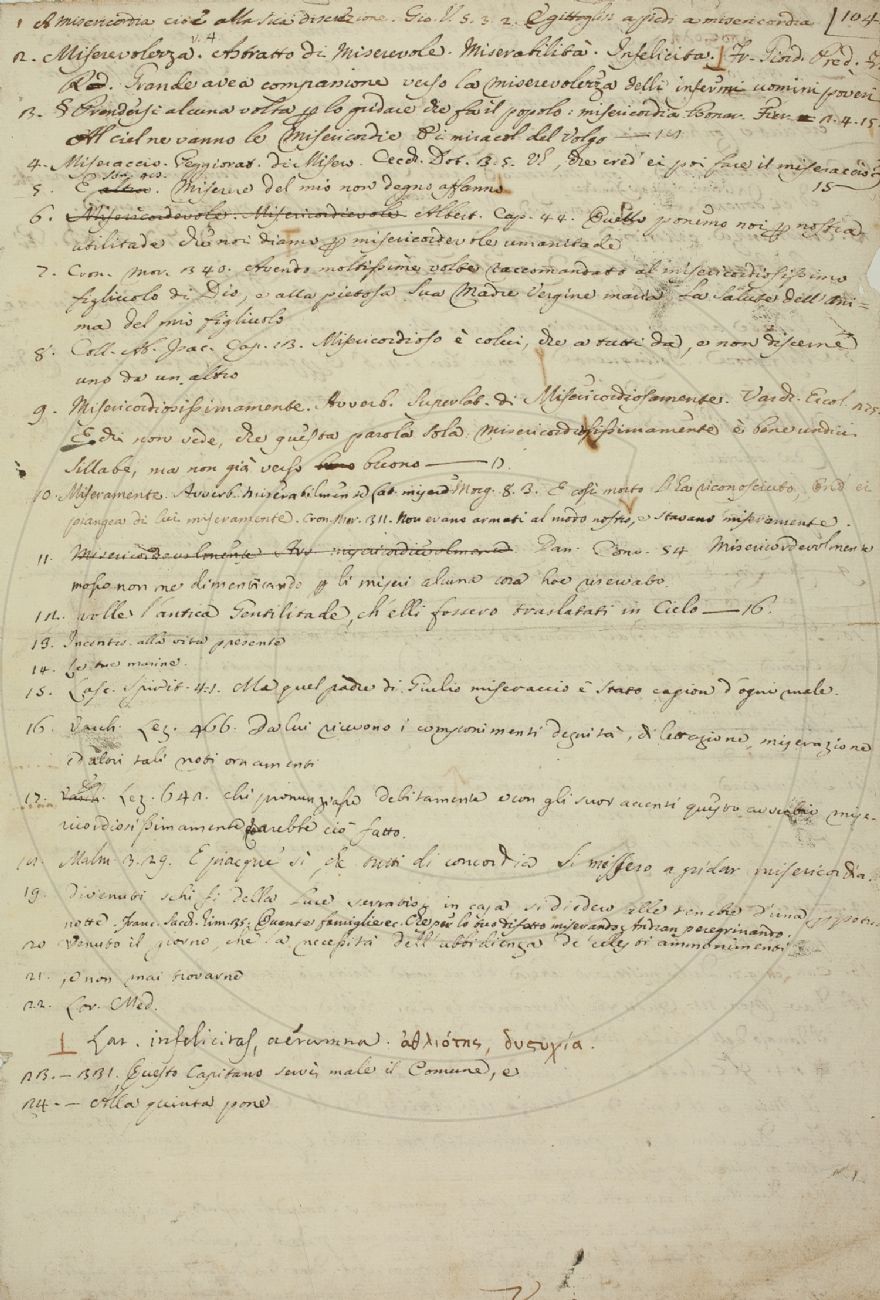 104
1 A misericordia cioè alla sua discrezione. Gio. V. 5. 3. 2. E gittoglisi a piedi a misericordia
v. 4.
2. Miserevolezza. Astratto di Miserevole. Miserabilità. Infelicità. ⊥ Fr. Giord. Pred. S.
Red. Grande avea compassione verso la miserevolezza delli infermi uomini poveri
3. § Prendersi alcuna volta p lo gridare che fa il popolo: misericordia Bonar. Fier. 3. 4. 15.
Al ciel ne vanno le Misericordie e i miracol del volgo
4. Miseraccio. Peggiorat. di Misero. Cecch. Dot. 3. 5. Uh, che cred' ei poi fare il miseraccio?
15
5. E altro. Miserere del mio non degno affanno
6. Misericordevole. Misericordievole Albert. Cap. 44. Quello ponemo noi p nostra
utilitade che noi diamo p misericordevole umanitade
7. Cron. Mor. 340. Avendo moltissime volte raccomandato al misericordiosissimo
figliuolo di Dio, e alla pietosa sua Madre Vergine maria la salute dell' Ani=
ma del mio figliuolo
8. Coll. Ab. Isac. Cap. 13. Misericordioso è colui, che a tutti dà, e non discerne
uno da un altro
9. Misericordiosissimamente. Avverb. Superlat. di Misericordiosamente. Varch. Ercol. 275.
E chi non vede, che questa parola sola misericordiosissimamente è bene undici
sillabe, ma non già verso buono
10. Miseramente. Avverb. Morg. 8. 3. E così morto l' ha riconosciuto, Ond' ei
piangea di lui miseramente. Cron. Mor. 311. Non erano armati al modo nostro, e stavano miseramente.
11. Misericordevolmente Avv. misericordievolmente Dan. Conv. 54 Misericordevolmente
mosso non me dimenticando p li miseri alcuna cosa hoe riservato.
12. volle l' antica Gentilitade, ch' elli fossero traslatati in Cielo — 16.
13. Incontro alla vita presente
14. Le tue marine.
15. Lasc. Spirit. 4.1. Ma quel padre di Giulio miseraccio è stato cagion d' ogni male.
16. Varch. Lez. 466. Da lui ricevono i componimenti degnità, dilettazione, miserazione
ed altri tali nobi ornamenti
17. Varch. Lez. 642. chi pronunziasse debitamente e con gli suoi accenti questo avverbio mise-
ricordiosissimamente arebbe ciò fatto.
18. Malm. 3. 29. E piacque sì, che tutti di concordia Si messero a gridar misericordia.
19. Divenuti schifi della luce serratosi in casa si diedero alle tenebre d' una
notte. Franc. Sacch. rim. 35. Quante famiglie ec. Che per lo tuo difetto miserando Andran peregrinando.
20 Venuto il giorno, che la necessità dell' ubbidienza de' celesti ammonimenti
21. , e non mai trovarne
22. Lor. Med.
⊥ Lat. infelicitas, aerumna. ἀθλιότης, δυστυχία.
23. — 331. Questo Capitano servì male il Comune, e
24. — Alla quinta pone